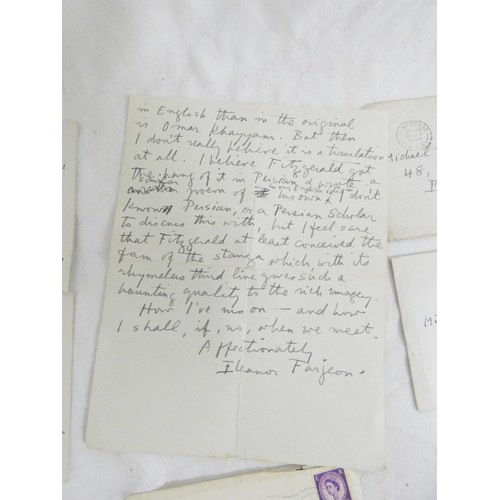 in English than in the original
is Omar Khayyam. But then
I don't really believe it is a translation
at all. I believe Fitzgerald got
the hang of it in Persian & wrote a
similar poem of his own in English & I don't
know Persian, or a Persian Scholar
to discuss this with, but I feel sure
that Fitzgerald at least conceived the
form of the stanza which with its
rhymeless third line gives such a
haunting quality to the rich imagery.
How I've run on — and how
I shall, if, no, when we meet.
Affectionately
Eleanor Farjeon.
Michael
48,
Mi